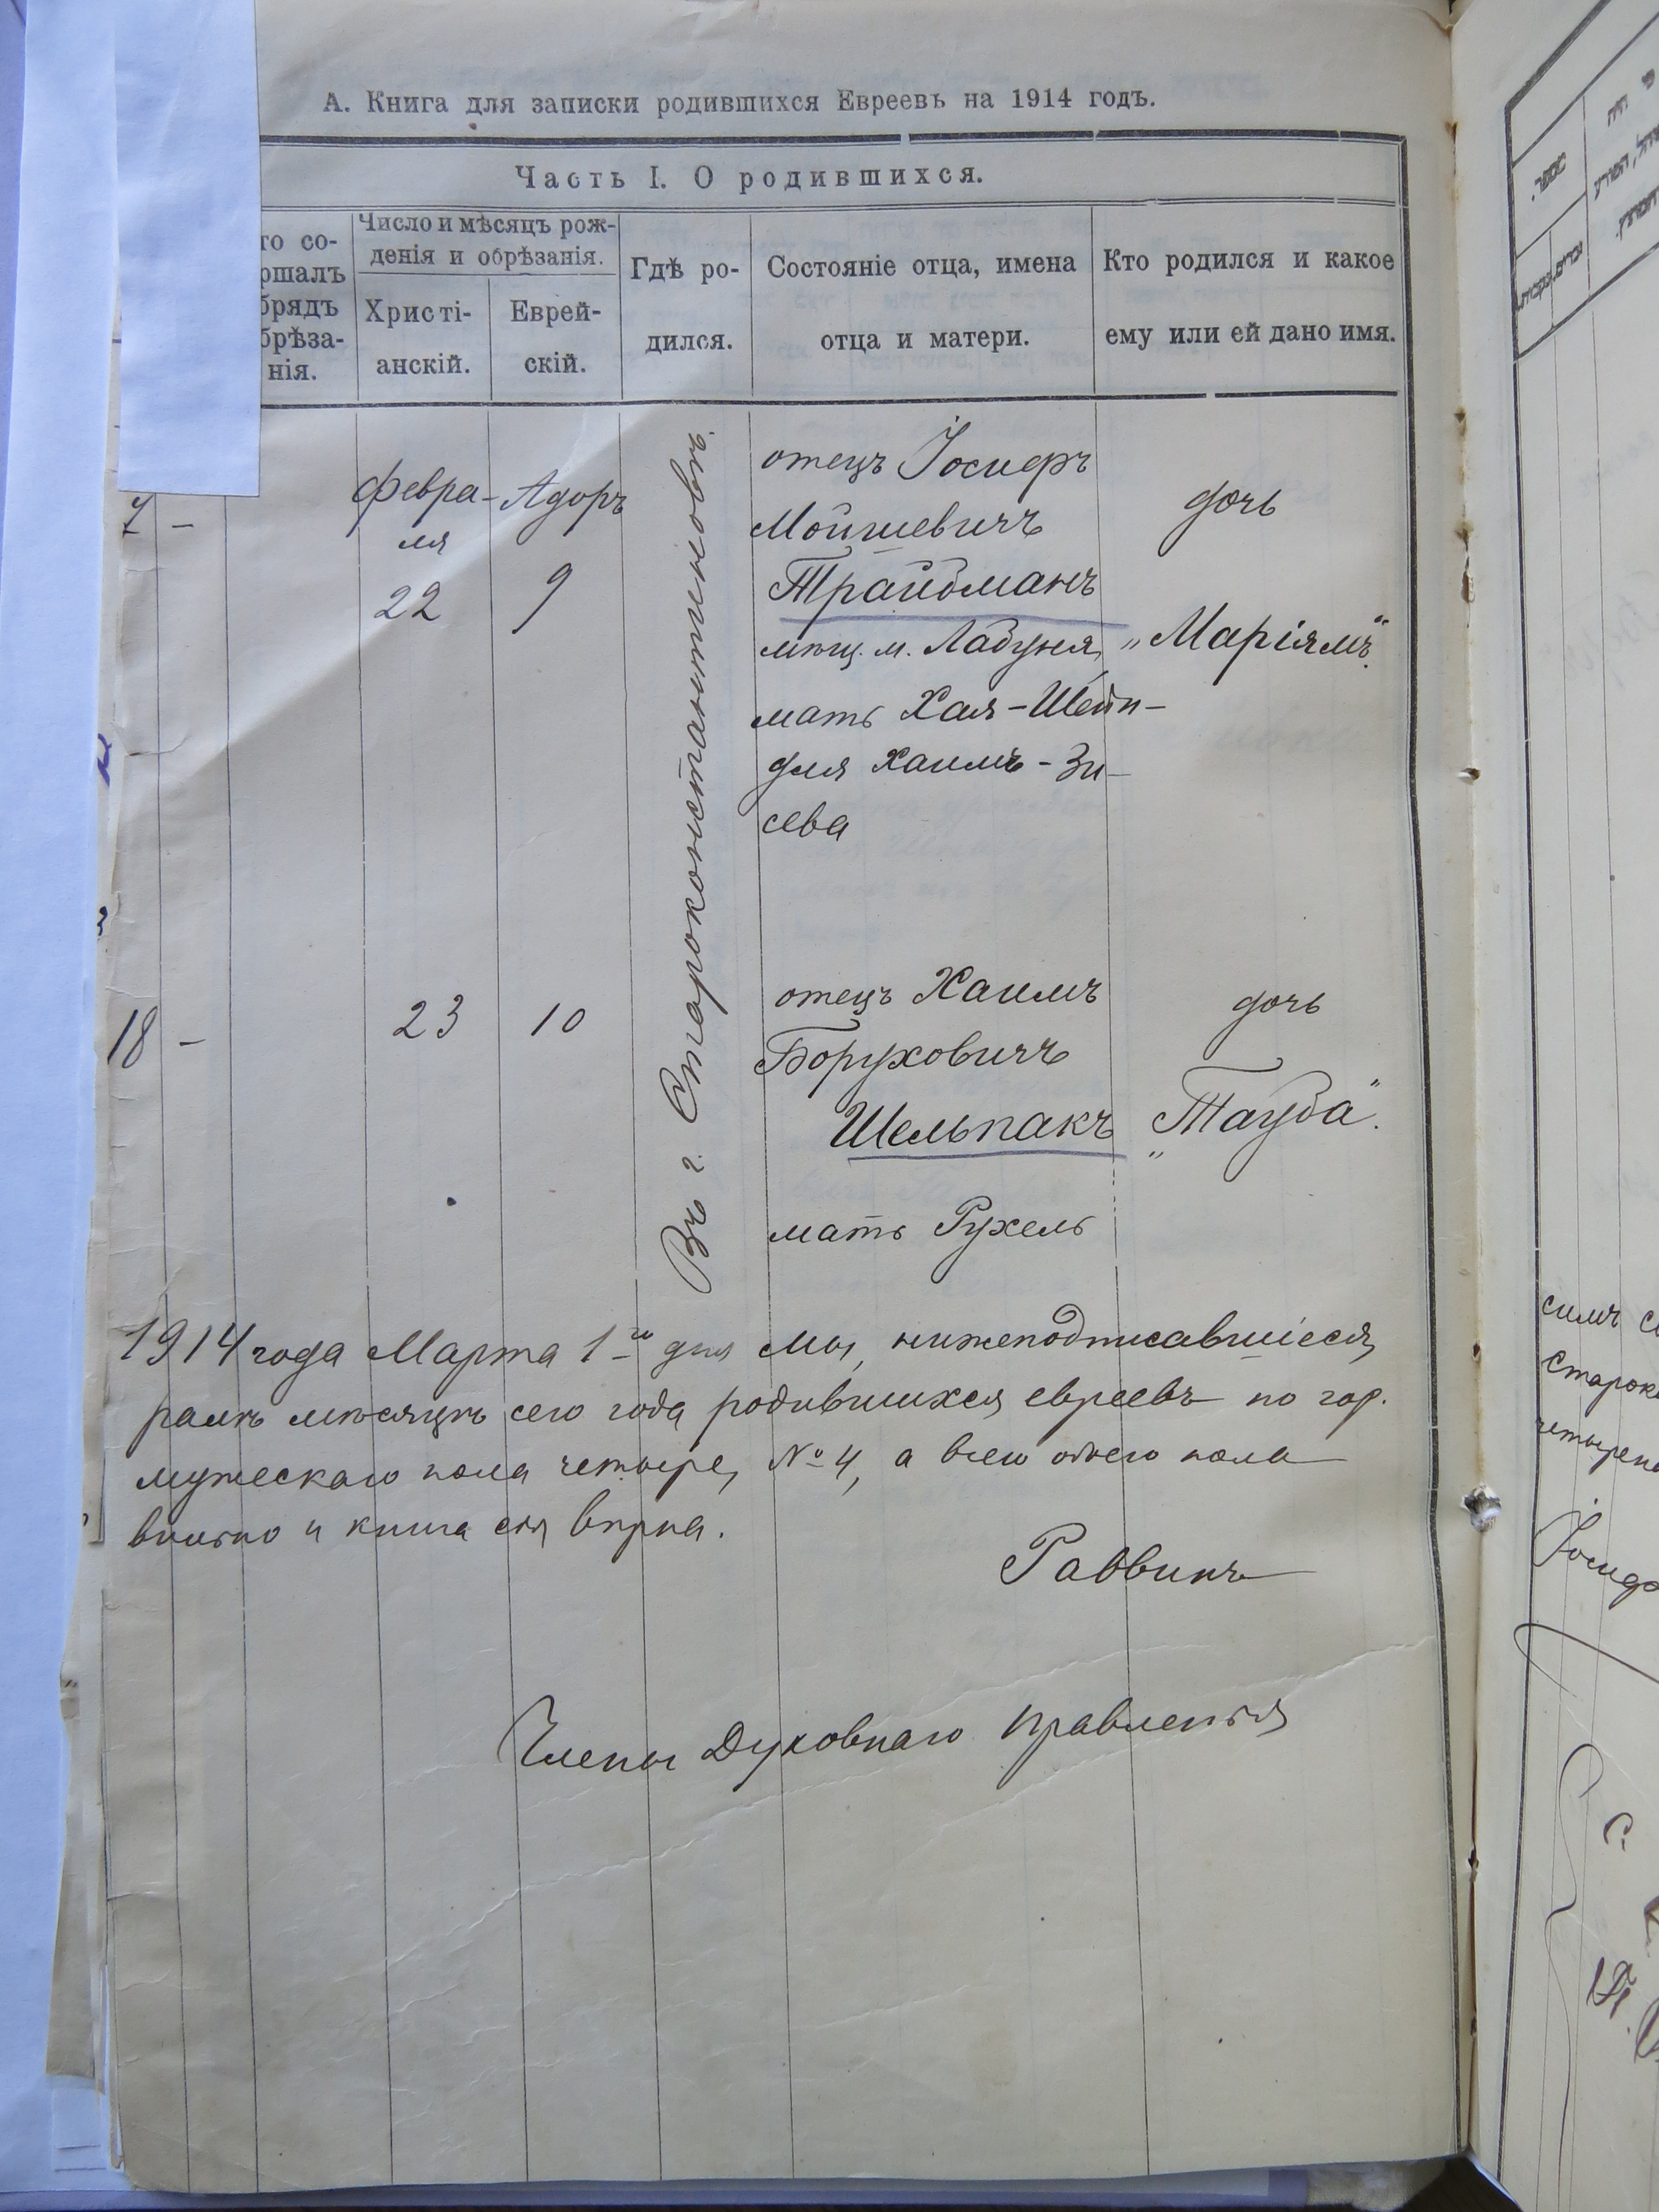 А. Книга для записки родившихся Евреевъ на 1914 годъ.
Часть I. О родившихся.
то со-
ршалъ
брядъ
брѣза-
нія.
Число и мѣсяцъ рож-
денія и обрѣзанія.
Христі-
анскій.
Еврей-
скій.
Гдѣ ро-
дился.
Состояніе отца, имена
отца и матери.
Кто родился и какое
ему или ей дано имя.
7 —
Февра-
ля
22
Адоръ
9
Въ г. Староконстантиновѣ.
отецъ Іосифъ
Мойшевичъ
Трайбманъ
мѣщ. м. Лабуня,
мать Хая-Шейн-
для Хаимъ-Зи-
сева
дочь
„Маріямъ“.
18 —
23
10
отецъ Хаимъ
Боруховичъ
Шельпакъ
мать Рухель
дочь
„Тауба“.
1914 года Марта 1го дня Мы, нижеподписавшіеся,
ралѣ мѣсяцѣ сего года родившихся евреевъ по гор.
мужескаго пола четыре, № 4, а всего обоего пола
вильно и книга сія вѣрна.
Раввинъ
Члены Духовнаго Правленія
симъ с
Староко
четырена
Іосифо